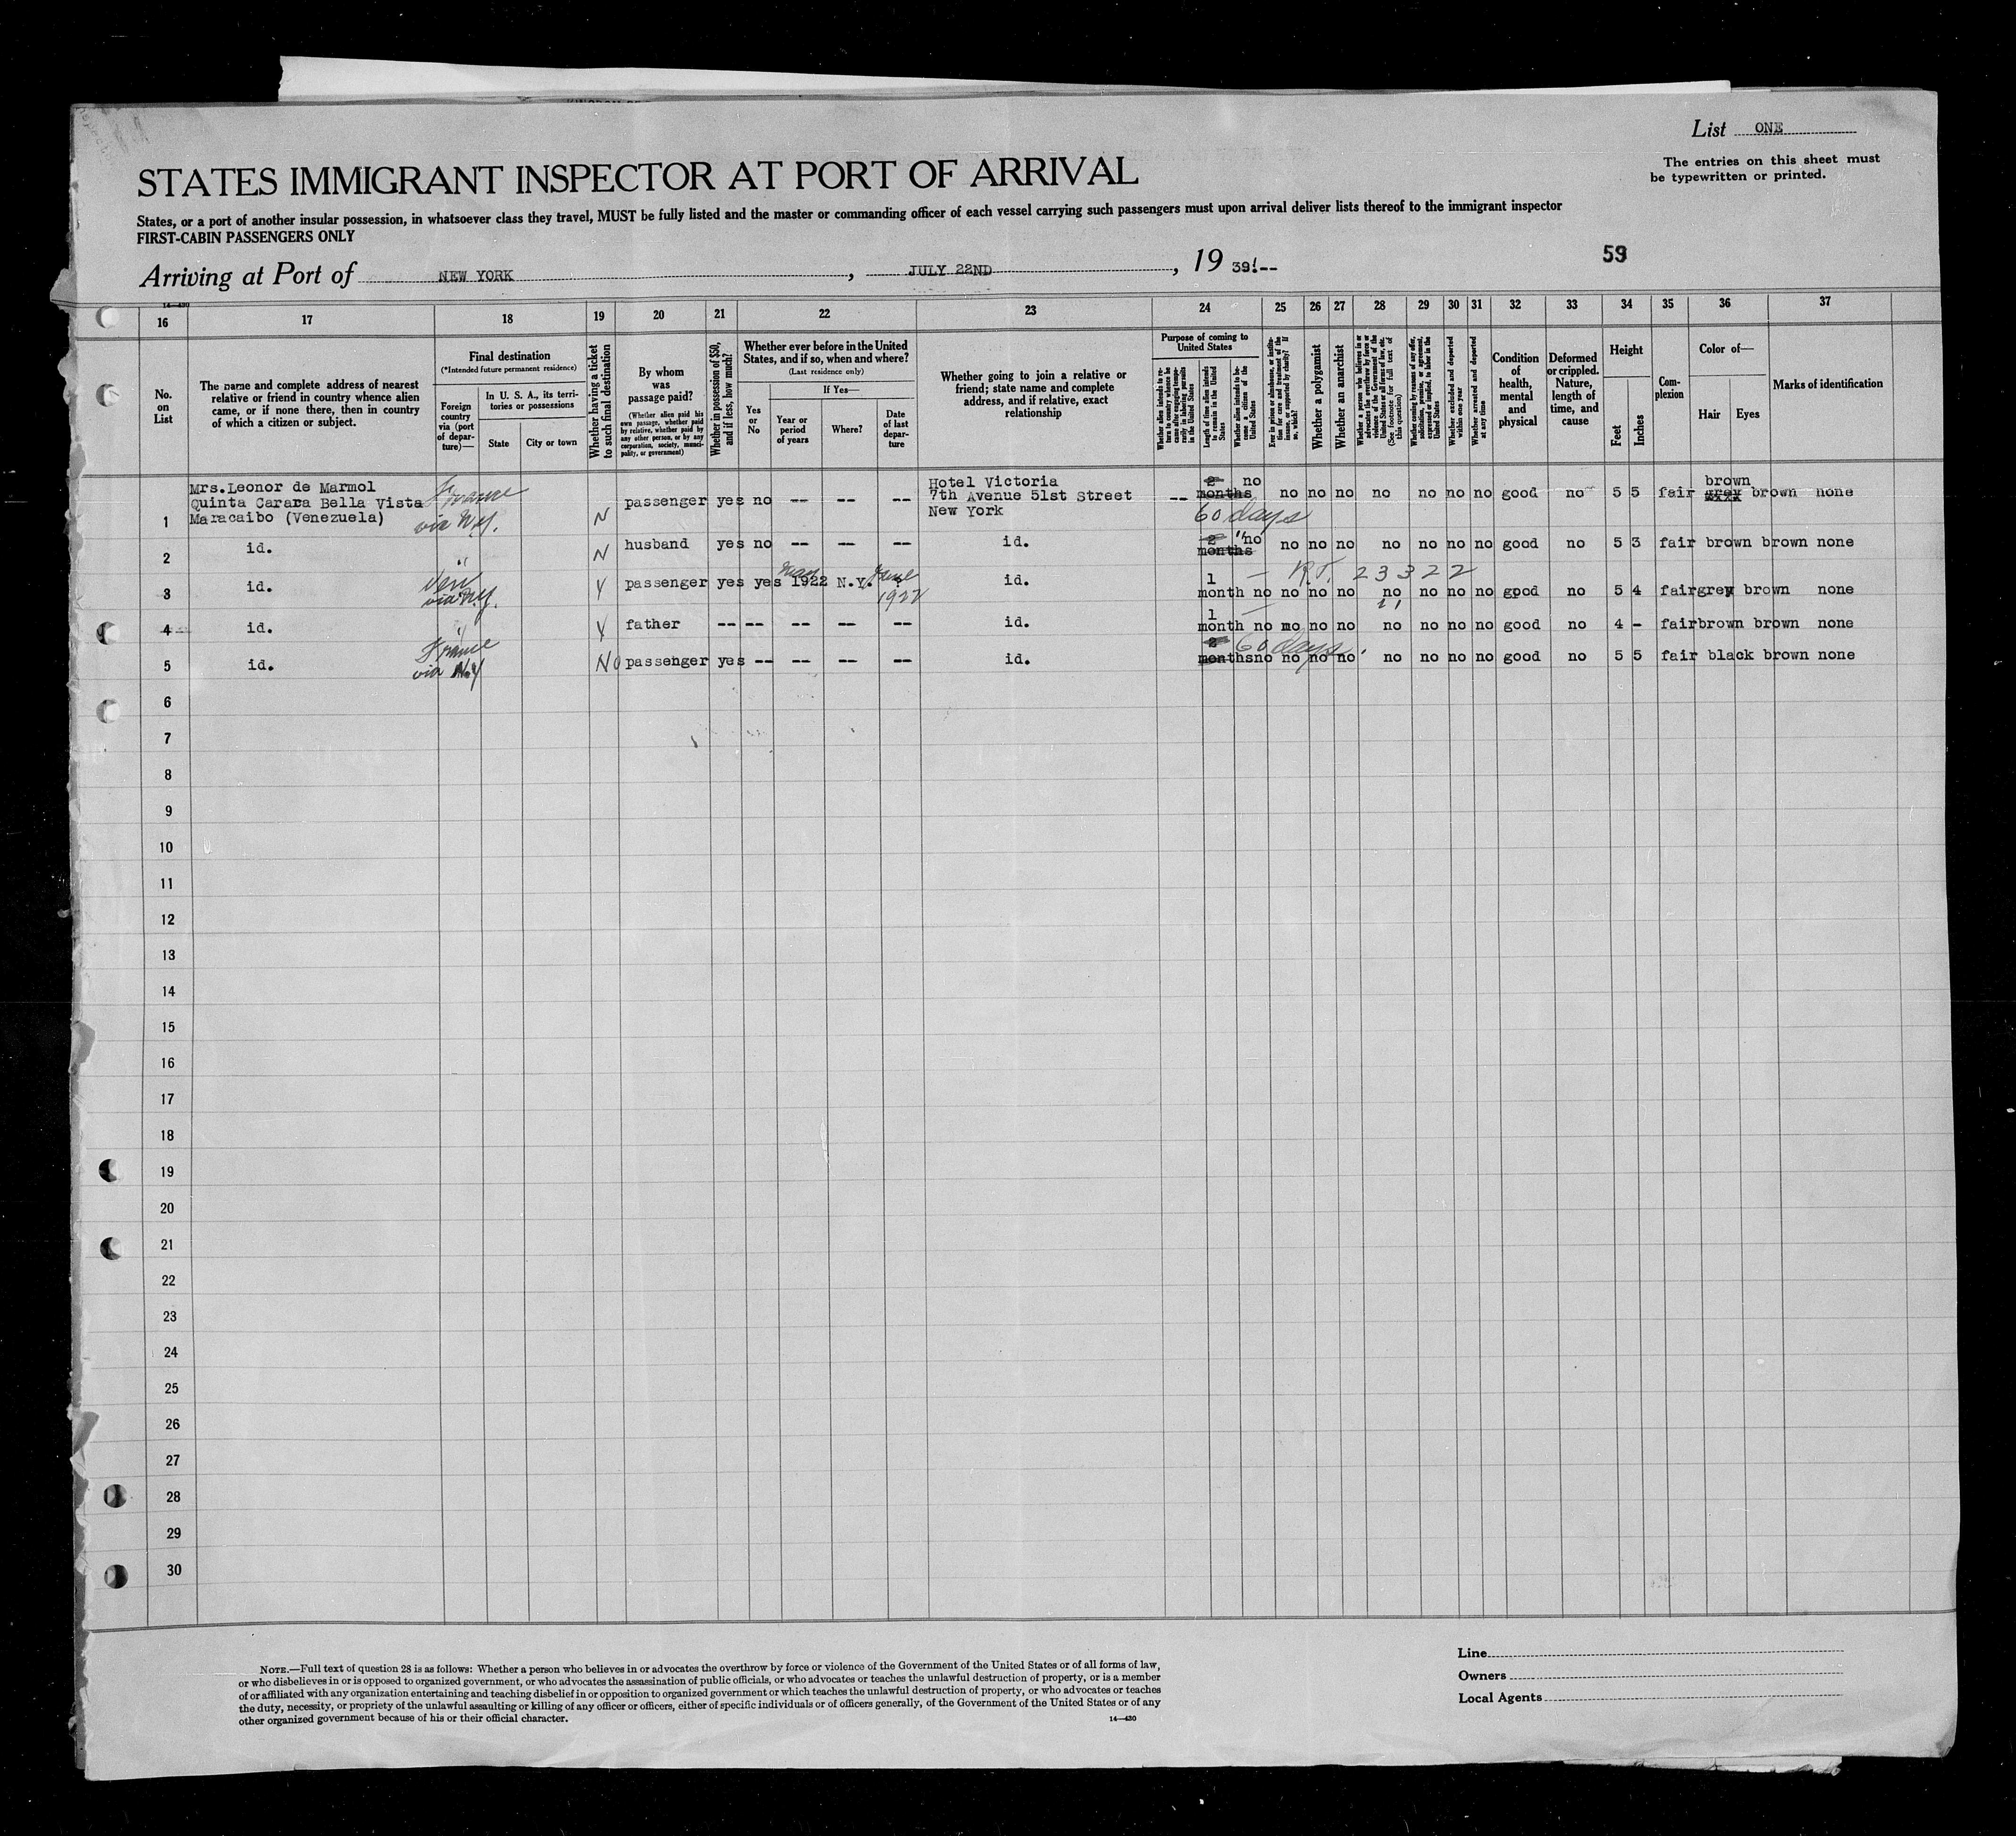 List ONE
The entries on this sheet must
be typewritten or printed.
STATES IMMIGRANT INSPECTOR AT PORT OF ARRIVAL
States, or a port of another insular possession, in whatsoever class they travel, MUST be fully listed and the master or commanding officer of each vessel carrying such passengers must upon arrival deliver lists thereof to the immigrant inspector
FIRST-CABIN PASSENGERS ONLY
Arriving at Port of NEW YORK, JULY 22ND, 19 39!--
59
14—430
16 17 18 19 20 21 22 23 24 25 26 27 28 29 30 31 32 33 34 35 36 37
No.
on
List
The name and complete address of nearest
relative or friend in country whence alien
came, or if none there, then in country
of which a citizen or subject.
Final destination
(*Intended future permanent residence)
Foreign
country
via (port
of depar-
ture)—
In U. S. A., its terri-
tories or possessions
State
City or town
Whether having a ticket
to such final destination
By whom
was
passage paid?
(Whether alien paid his
own passage, whether paid
by relative, whether paid by
any other person, or by any
corporation, society, munici-
pality, or government)
Whether in possession of $50,
and if less, how much?
Whether ever before in the United
States, and if so, when and where?
(Last residence only)
Yes
or
No
If Yes—
Year or
period
of years
Where?
Date
of last
depar-
ture
Whether going to join a relative or
friend; state name and complete
address, and if relative, exact
relationship
Purpose of coming to
United States
Whether alien intends to re-
turn to country whence he
came after engaging tempo-
rarily in laboring pursuits
in the United States
Length of time alien intends
to remain in the United
States
Whether alien intends to be-
come a citizen of the
United States
Ever in prison or almshouse, or institu-
tion for care and treatment of the
insane, or supported by charity? If
so, which?
Whether a polygamist
Whether an anarchist
Whether a person who believes in or
advocates the overthrow by force or
violence of the Government of the
United States or all forms of law, etc.
(See footnote for full text of
this question)
Whether coming by reason of any offer,
solicitation, promise, or agreement,
expressed or implied, to labor in the
United States
Whether excluded and deported
within one year
Whether arrested and deported
at any time
Condition
of
health,
mental
and
physical
Deformed
or crippled.
Nature,
length of
time, and
cause
Height
Feet
Inches
Com-
plexion
Color of—
Hair Eyes
Marks of identification
Mrs.Leonor de Marmol
Quinta Carara Bella Vista
Maracaibo (Venezuela)
1 France via N.Y. N passenger yes no -- -- -- Hotel Victoria
7th Avenue 51st Street
New York
-- 2 months 60 days no no no no no no no no good no 5 5 fair grey brown brown none
2 id. " N husband yes no -- -- -- id. 2 months " no no no no no no no no good no 5 3 fair brown brown none
3 id. Ven via N.Y. Y passenger yes yes May 1922 N.Y. June 1922 id. 1 month — R.P. 23322 no no no no no no no no good no 5 4 fair grey brown none
4 id. " Y father -- -- -- -- -- id. 1 month — no mo no no no no no no good no 4 - fair brown brown none
5 id. France via N.Y No passenger yes -- -- -- -- id. 2 months 60 days no no no no no no no no good no 5 5 fair black brown none
6
7
8
9
10
11
12
13
14
15
16
17
18
19
20
21
22
23
24
25
26
27
28
29
30
NOTE.—Full text of question 28 is as follows: Whether a person who believes in or advocates the overthrow by force or violence of the Government of the United States or of all forms of law,
or who disbelieves in or is opposed to organized government, or who advocates the assassination of public officials, or who advocates or teaches the unlawful destruction of property, or is a member
of or affiliated with any organization entertaining and teaching disbelief in or opposition to organized government or which teaches the unlawful destruction of property, or who advocates or teaches
the duty, necessity, or propriety of the unlawful assaulting or killing of any officer or officers, either of specific individuals or of officers generally, of the Government of the United States or of any
other organized government because of his or their official character.
14—430
Line
Owners
Local Agents